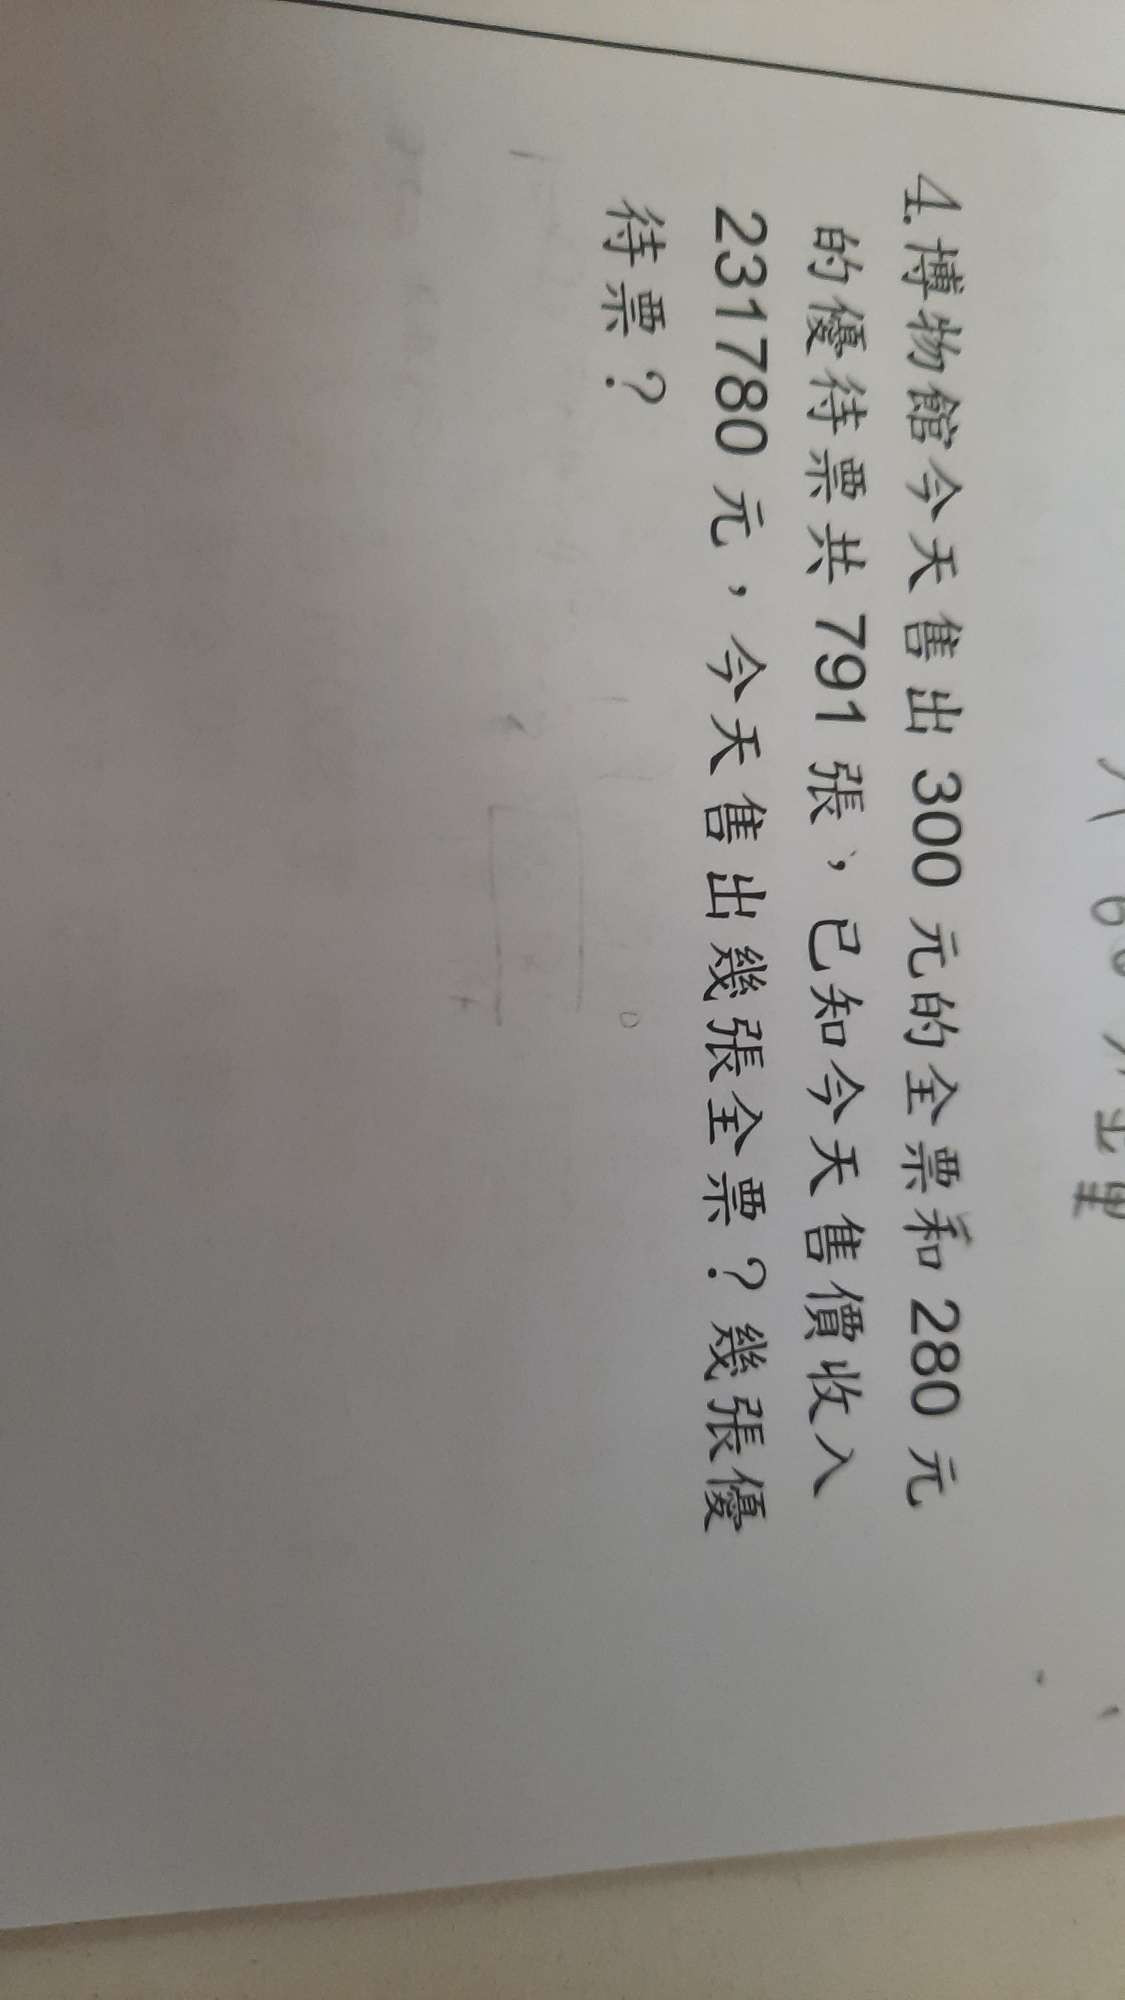 4.博物館今天售出 300 元的全票和 280 元
的優待票共 791 張，已知今天售價收入
231780 元，今天售出幾張全票？幾張優
待票？